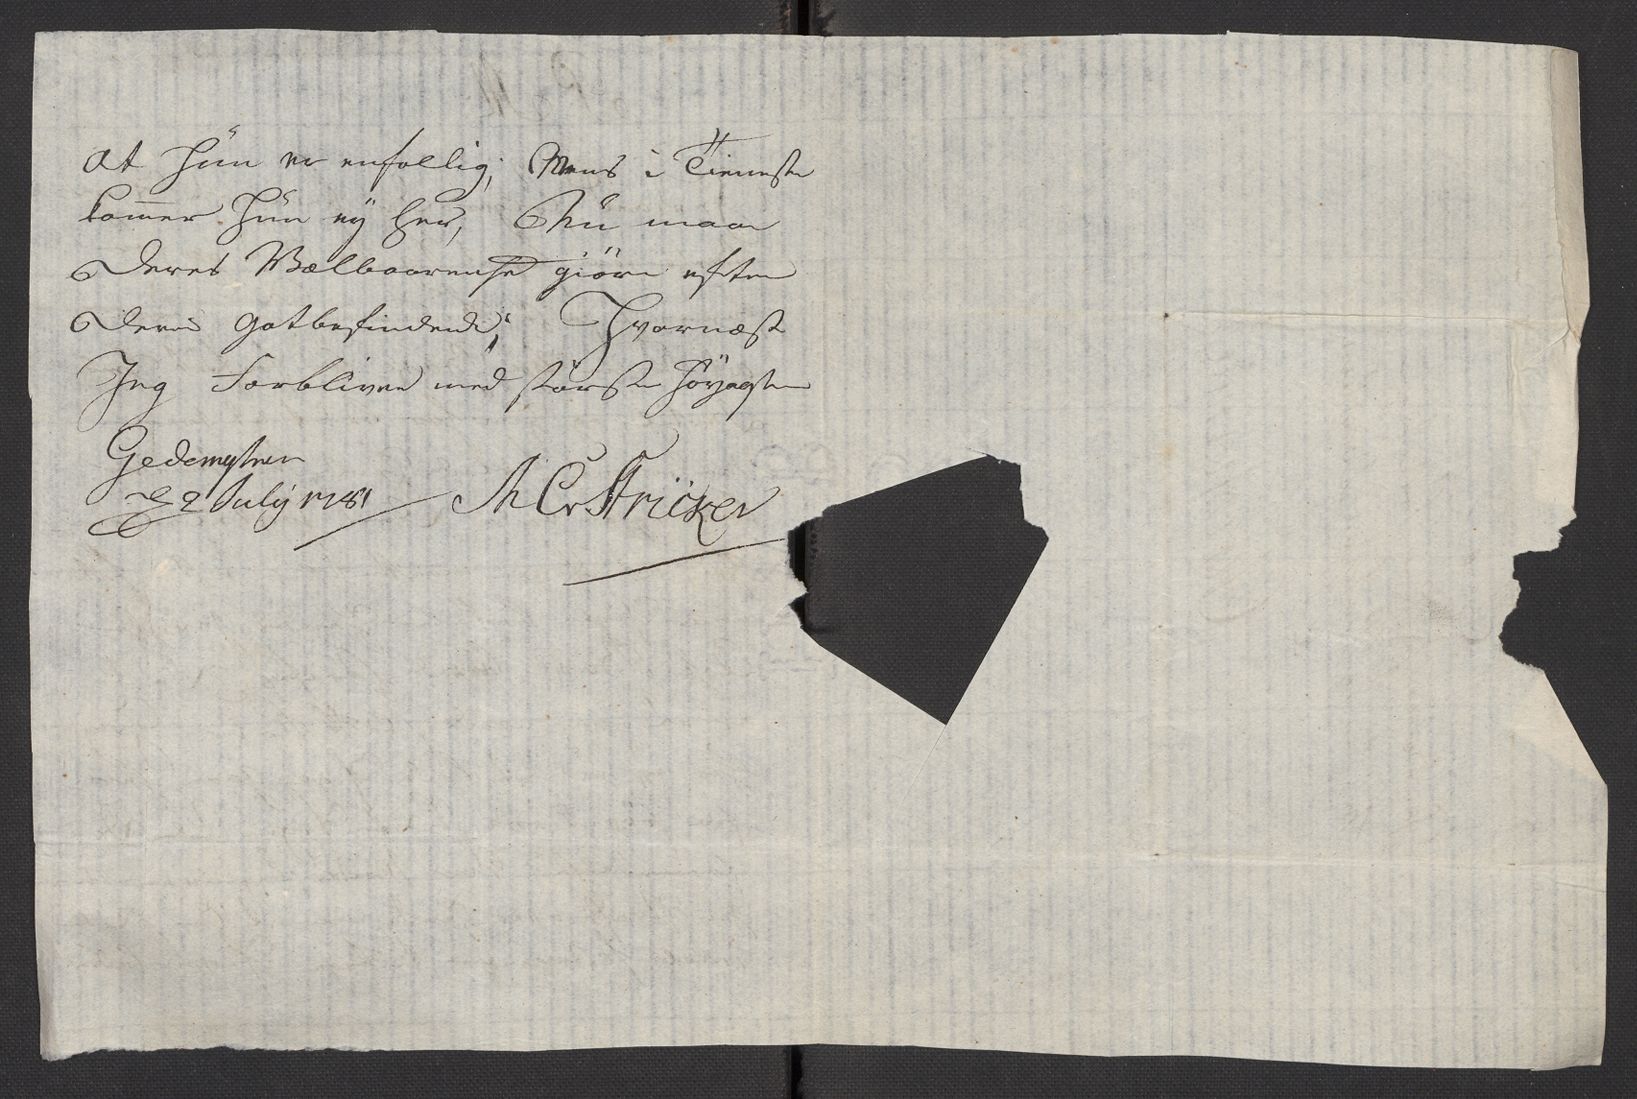 at hun er enfollig, Mens i Tieneste
kommer hun ey her, Nu maae
Deres Wælbaarenhed giöre efter
Deres gotbefindende; Hvornæst
Jeg Forbliver med störste Höyagten
2 July 1781 M C v Stricker